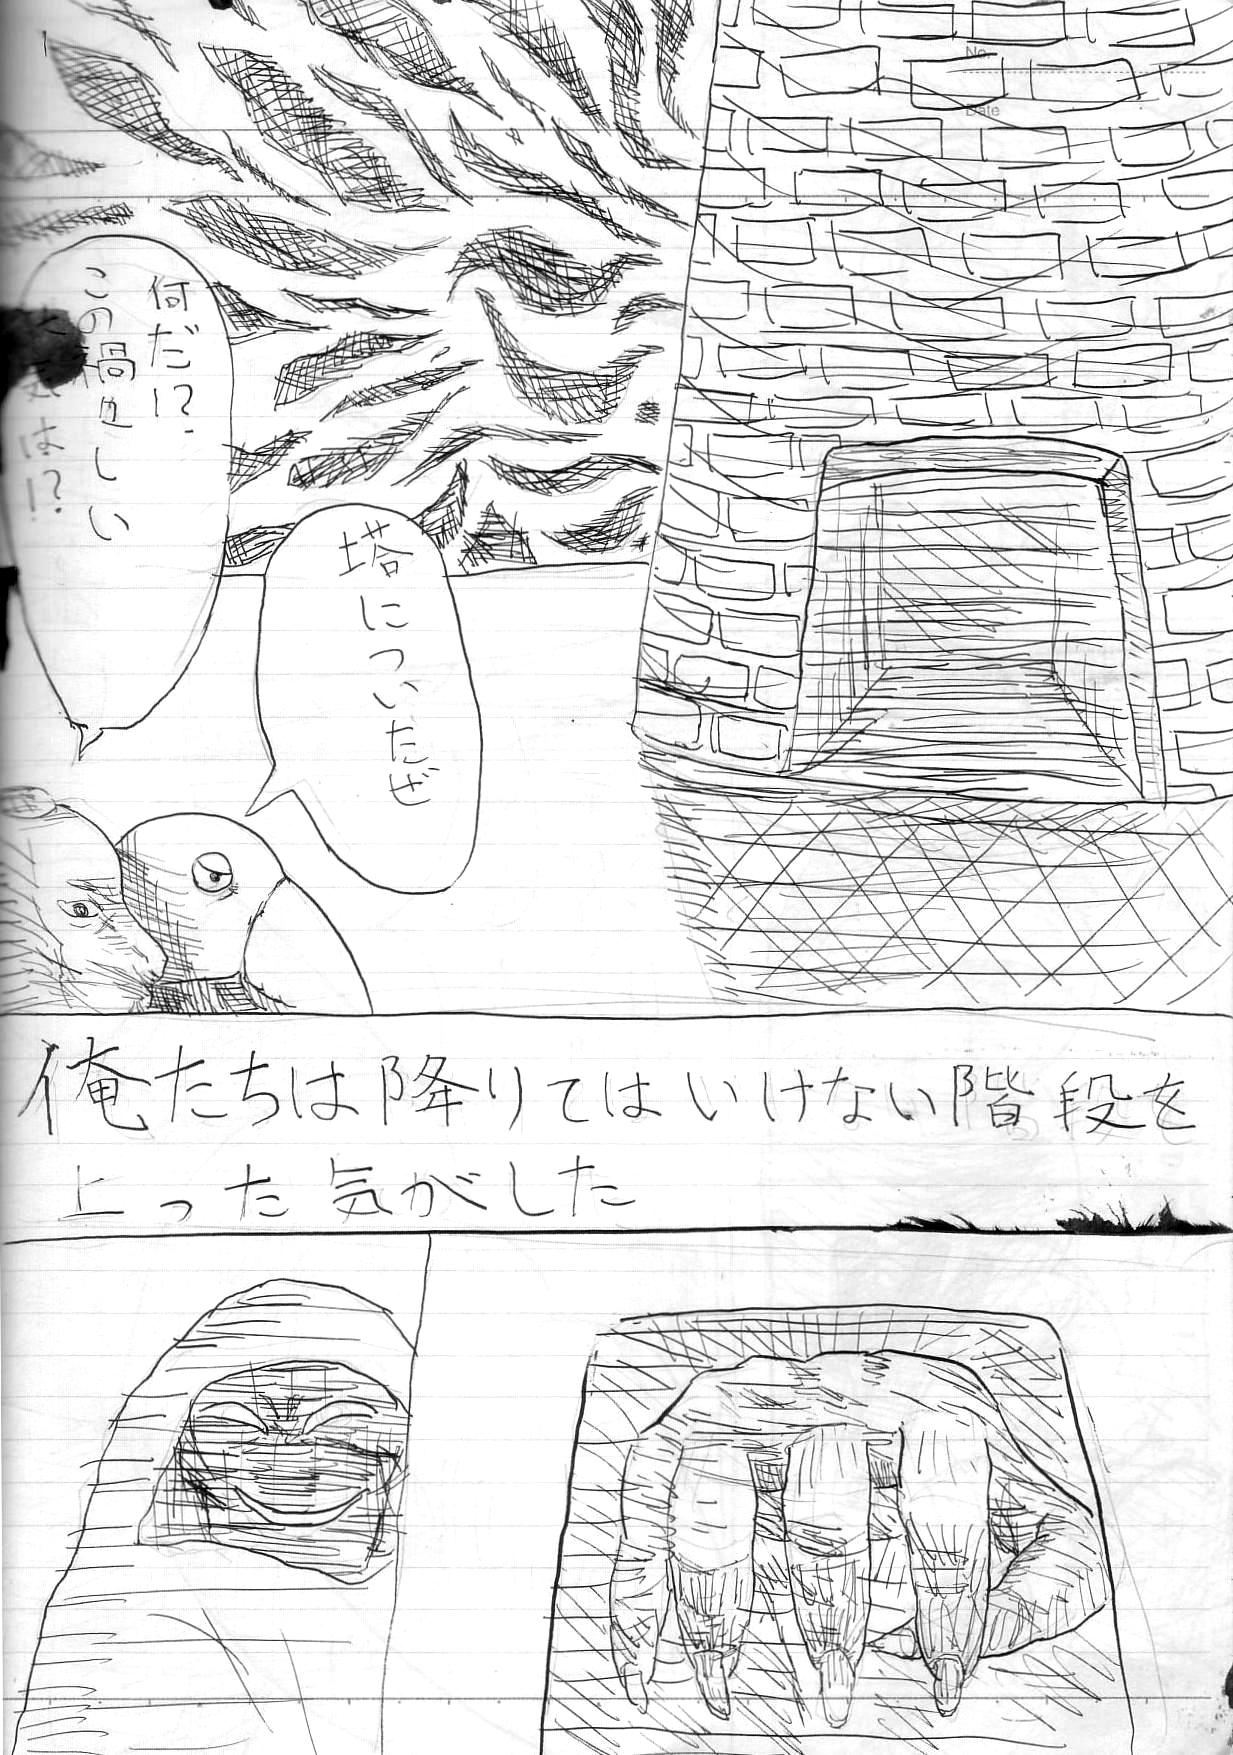 No.
Date
塔についたぜ
何だ!?
この禍々しい
気は!?
俺たちは降りてはいけない階段を
上った気がした